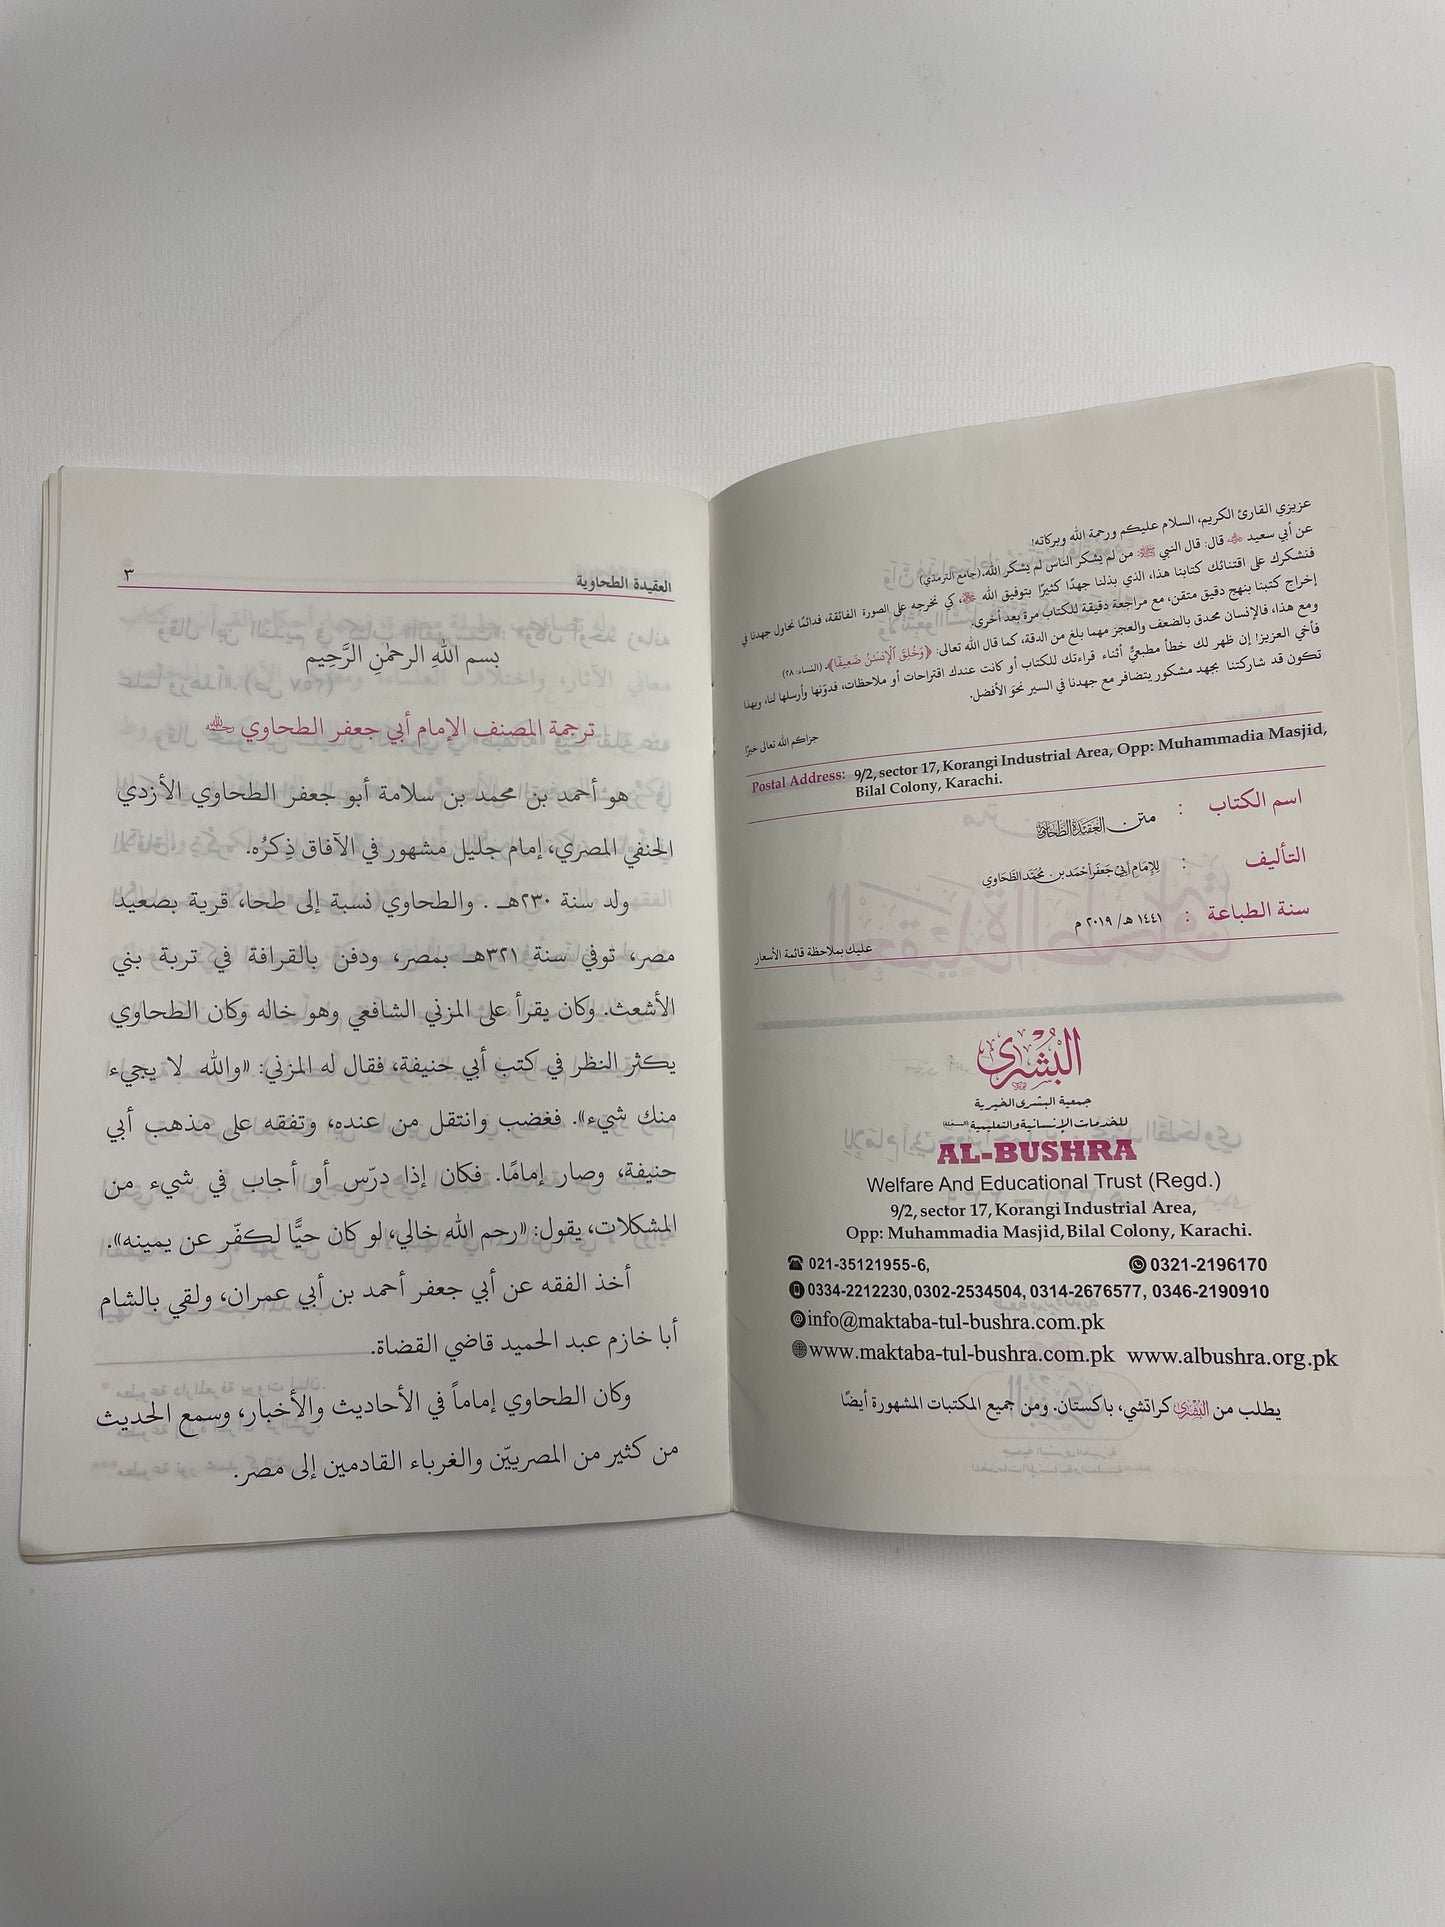 عزيزي القارئ الكريم، السلام عليكم ورحمة الله وبركاته!
عن أبي سعيد ؓ قال: قال النبي ﷺ: من لم يشكر الناس لم يشكر الله. (جامع الترمذي)
فنشكرك على اقتنائك كتابنا هذا، الذي بذلنا جهدًا كثيرًا بتوفيق الله ﷻ، كي نخرجه على الصورة الفائقة، فدائمًا نحاول جهدنا في
إخراج كتبنا بنهج دقيق متقن، مع مراجعة دقيقة للكتاب مرة بعد أخرى.
ومع هذا، فالإنسان محدق بالضعف والعجز مهما بلغ من الدقة، كما قال الله تعالى: ﴿وَخُلِقَ ٱلْإِنسَٰنُ ضَعِيفًا﴾. (النساء: ٢٨)
فأخي العزيز! إن ظهر لك خطأ مطبعيٌّ أثناء قراءتك للكتاب أو كانت عندك اقتراحات أو ملاحظات، فدوّنها وأرسلها لنا، وبهذا
تكون قد شاركتنا بجهد مشكور يتضافر مع جهدنا في السير نحوَ الأفضل.
جزاكم الله تعالى خيرًا
Postal Address: 9/2, sector 17, Korangi Industrial Area, Opp: Muhammadia Masjid,
Bilal Colony, Karachi.
اسم الكتاب : متن العقيدة الطحاوية
التأليف : للإمام أبي جعفر أحمد بن محمد الطحاوي
سنة الطباعة : ١٤٤١ هـ/ ٢٠١٩ م
عليك بملاحظة قائمة الأسعار
البُشْرى
جمعية البشرى الخيرية
للخدمات الإنسانية والتعليمية
AL-BUSHRA
Welfare And Educational Trust (Regd.)
9/2, sector 17, Korangi Industrial Area,
Opp: Muhammadia Masjid, Bilal Colony, Karachi.
021-35121955-6, 0321-2196170
0334-2212230, 0302-2534504, 0314-2676577, 0346-2190910
info@maktaba-tul-bushra.com.pk
www.maktaba-tul-bushra.com.pk www.albushra.org.pk
يطلب من البُشْرى كراتشي، باكستان. ومن جميع المكتبات المشهورة أيضًا
العقيدة الطحاوية ٣
بسم اللهِ الرحمٰنِ الرَّحِيم
ترجمة المصنف الإمام أبي جعفر الطحاوي رحمه الله
هو أحمد بن محمد بن سلامة أبو جعفر الطحاوي الأزدي
الحنفي المصري، إمام جليل مشهور في الآفاق ذِكرُه.
ولد سنة ٢٣٠هـ . والطحاوي نسبة إلى طحا، قرية بصعيد
مصر، توفي سنة ٣٢١هـ بمصر، ودفن بالقرافة في تربة بني
الأشعث. وكان يقرأ على المزني الشافعي وهو خاله وكان الطحاوي
يكثر النظر في كتب أبي حنيفة، فقال له المزني: «والله لا يجيء
منك شيء». فغضب وانتقل من عنده، وتفقه على مذهب أبي
حنيفة، وصار إمامًا. فكان إذا درّس أو أجاب في شيء من
المشكلات، يقول: «رحم الله خالي، لو كان حيًّا لكفّر عن يمينه».
أخذ الفقه عن أبي جعفر أحمد بن أبي عمران، ولقي بالشام
أبا خازم عبد الحميد قاضي القضاة.
وكان الطحاوي إماماً في الأحاديث والأخبار، وسمع الحديث
من كثير من المصريّين والغرباء القادمين إلى مصر.